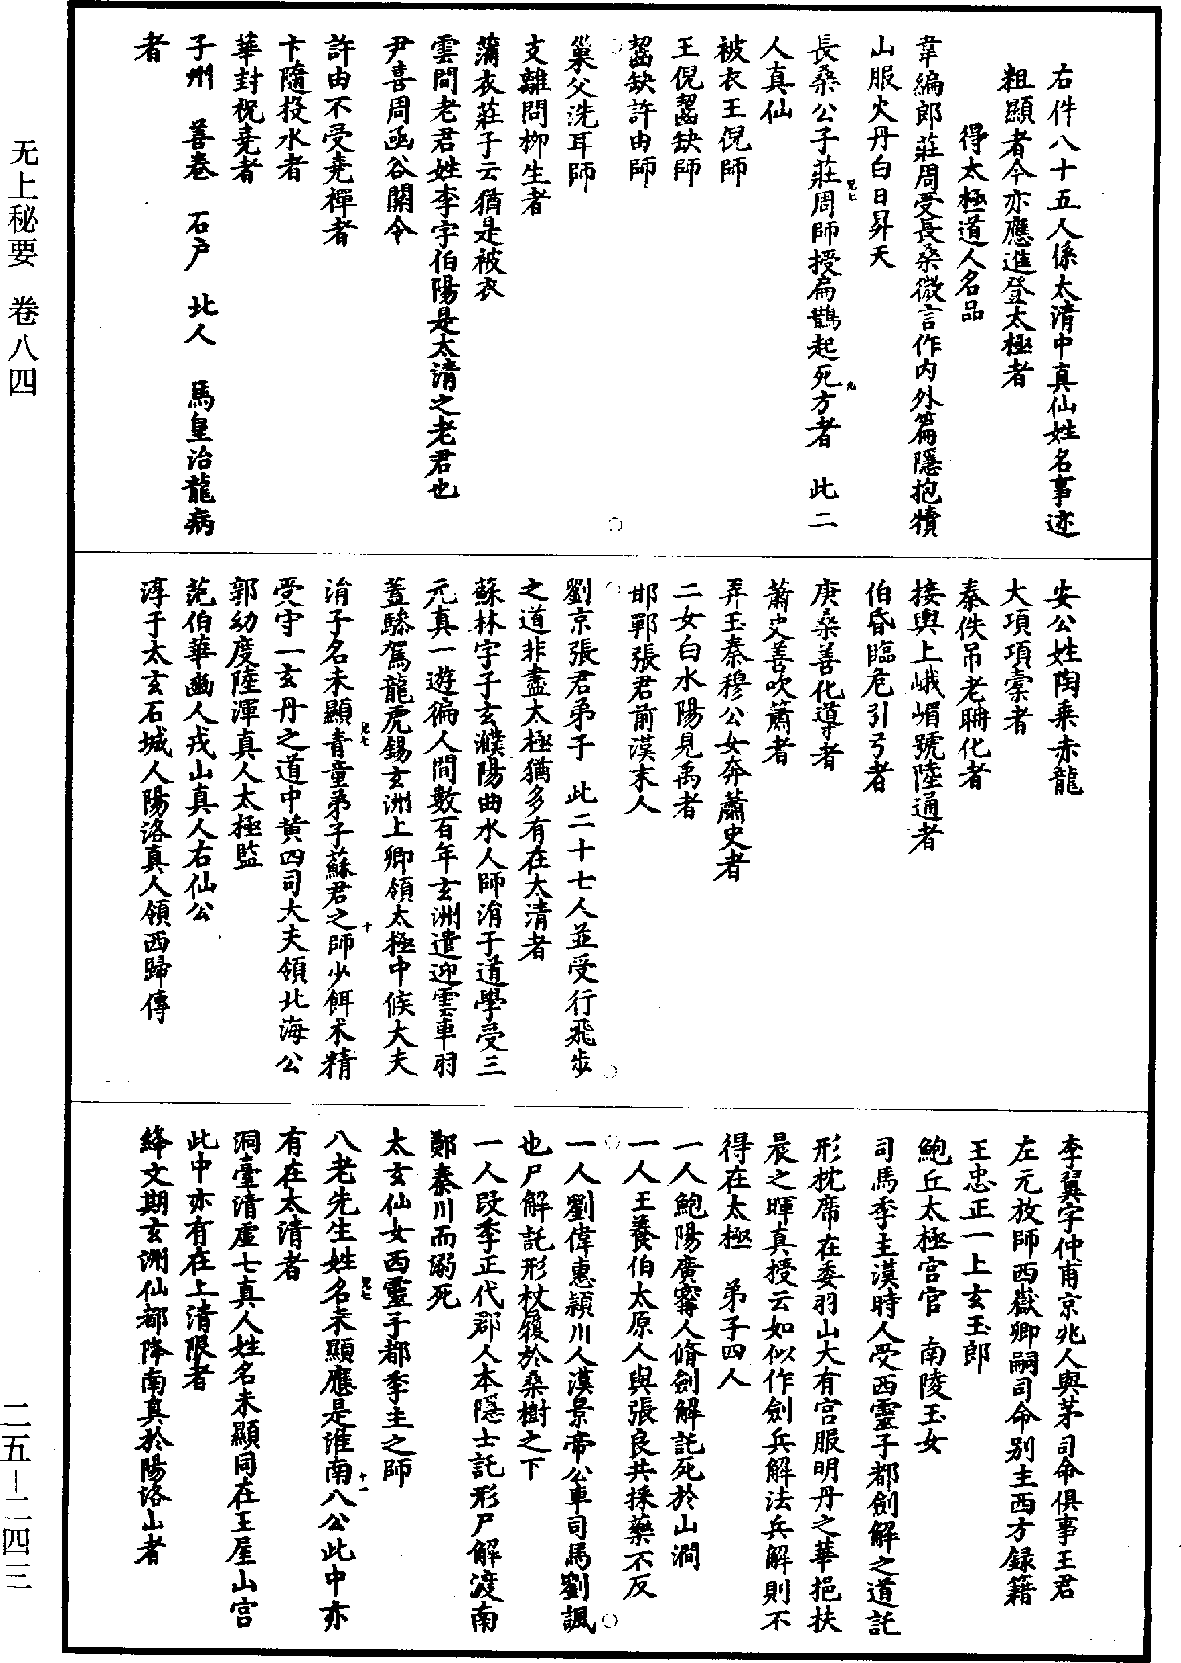 无上秘要　卷八四
右件八十五人係太清中真仙姓名事迹
粗顯者今亦應進登太極者
得太極道人名品
韋編郎莊周受長桑微言作內外篇隱抱犢
山服火丹白日昇天
長桑公子莊周師授扁鵲起死方者　此二
人真仙
被衣王倪師
王倪齧缺師
齧缺許由師
巢父洗耳師
支離問柳生者
蒲衣莊子云猶是被衣
雲間老君姓李字伯陽是太清之老君也
尹喜周函谷關令
許由不受堯禪者
卞隨投水者
華封祝堯者
子州　善卷　石户　北人　馬皇治龍病
者
安公姓陶乘赤龍
大項項橐者
秦佚吊老聃化者
接輿上峨嵋號陸通者
伯昏臨危引弓者
庚桑善化導者
蕭史善吹簫者
弄玉秦穆公女奔蕭史者
二女白水陽見禹者
邯鄲張君前漢末人
劉京張君弟子　此二十七人並受行飛步
之道非盡太極猶多有在太清者
蘇林字子玄濮陽曲水人師涓子道學受三
元真一遊徧人間數百年玄洲遣迎雲車羽
蓋驂駕龍虎錫玄洲上卿領太極中候大夫
涓子名未顯青童弟子蘇君之師少餌朮精
受守一玄丹之道中黃四司大夫領北海公
郭幼度陸渾真人太極監
范伯華幽人戎山真人右仙公
淳于太玄石城人陽洛真人領西歸傳
李翼字仲甫京兆人與茅司命俱事王君
左元放師西嶽卿嗣司命别主西方録籍
王忠正一上玄玉郎
鮑丘太極宮官　南陵玉女
司馬季主漢時人受西靈子都劍解之道託
形枕席在委羽山大有宮服明丹之華挹扶
晨之暉真授云如似作劍兵解法兵解則不
得在太極　弟子四人
一人鮑陽廣甯人脩劍解託死於山澗
一人王養伯太原人與張良共採藥不反
一人劉偉惠潁川人漢景帝公車司馬劉諷
也尸解託形杖履於桑樹之下
一人段季正代郡人本隱士託形尸解渡南
鄭秦川而溺死
太玄仙女西靈子都季主之師
八老先生姓名未顯應是淮南八公此中亦
有在太清者
洞臺清虛七真人姓名未顯同在王屋山宮
此中亦有在上清限者
絳文期玄洲仙都降南真於陽洛山者
二五—二四三